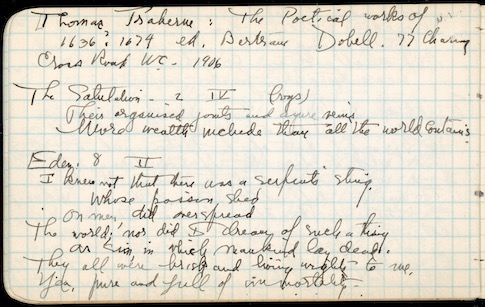 Thomas Traherne: The Poetical works of
1636? 1674 ed. Bertram Dobell. 77 Charing
Cross Road W.C. - 1906
The Salutation - 2 IV (
Their organised joints and azure veins
More wealth include than all the world contains
Eden. 8 II
I knew not that there was a serpents sting,
Whose poison shed
on men did overspread
The world; nor did I dream of such a thing
as sin in which mankind lay dead.
They all were brisk and living wights to me,
Yea, pure and full of immortality.